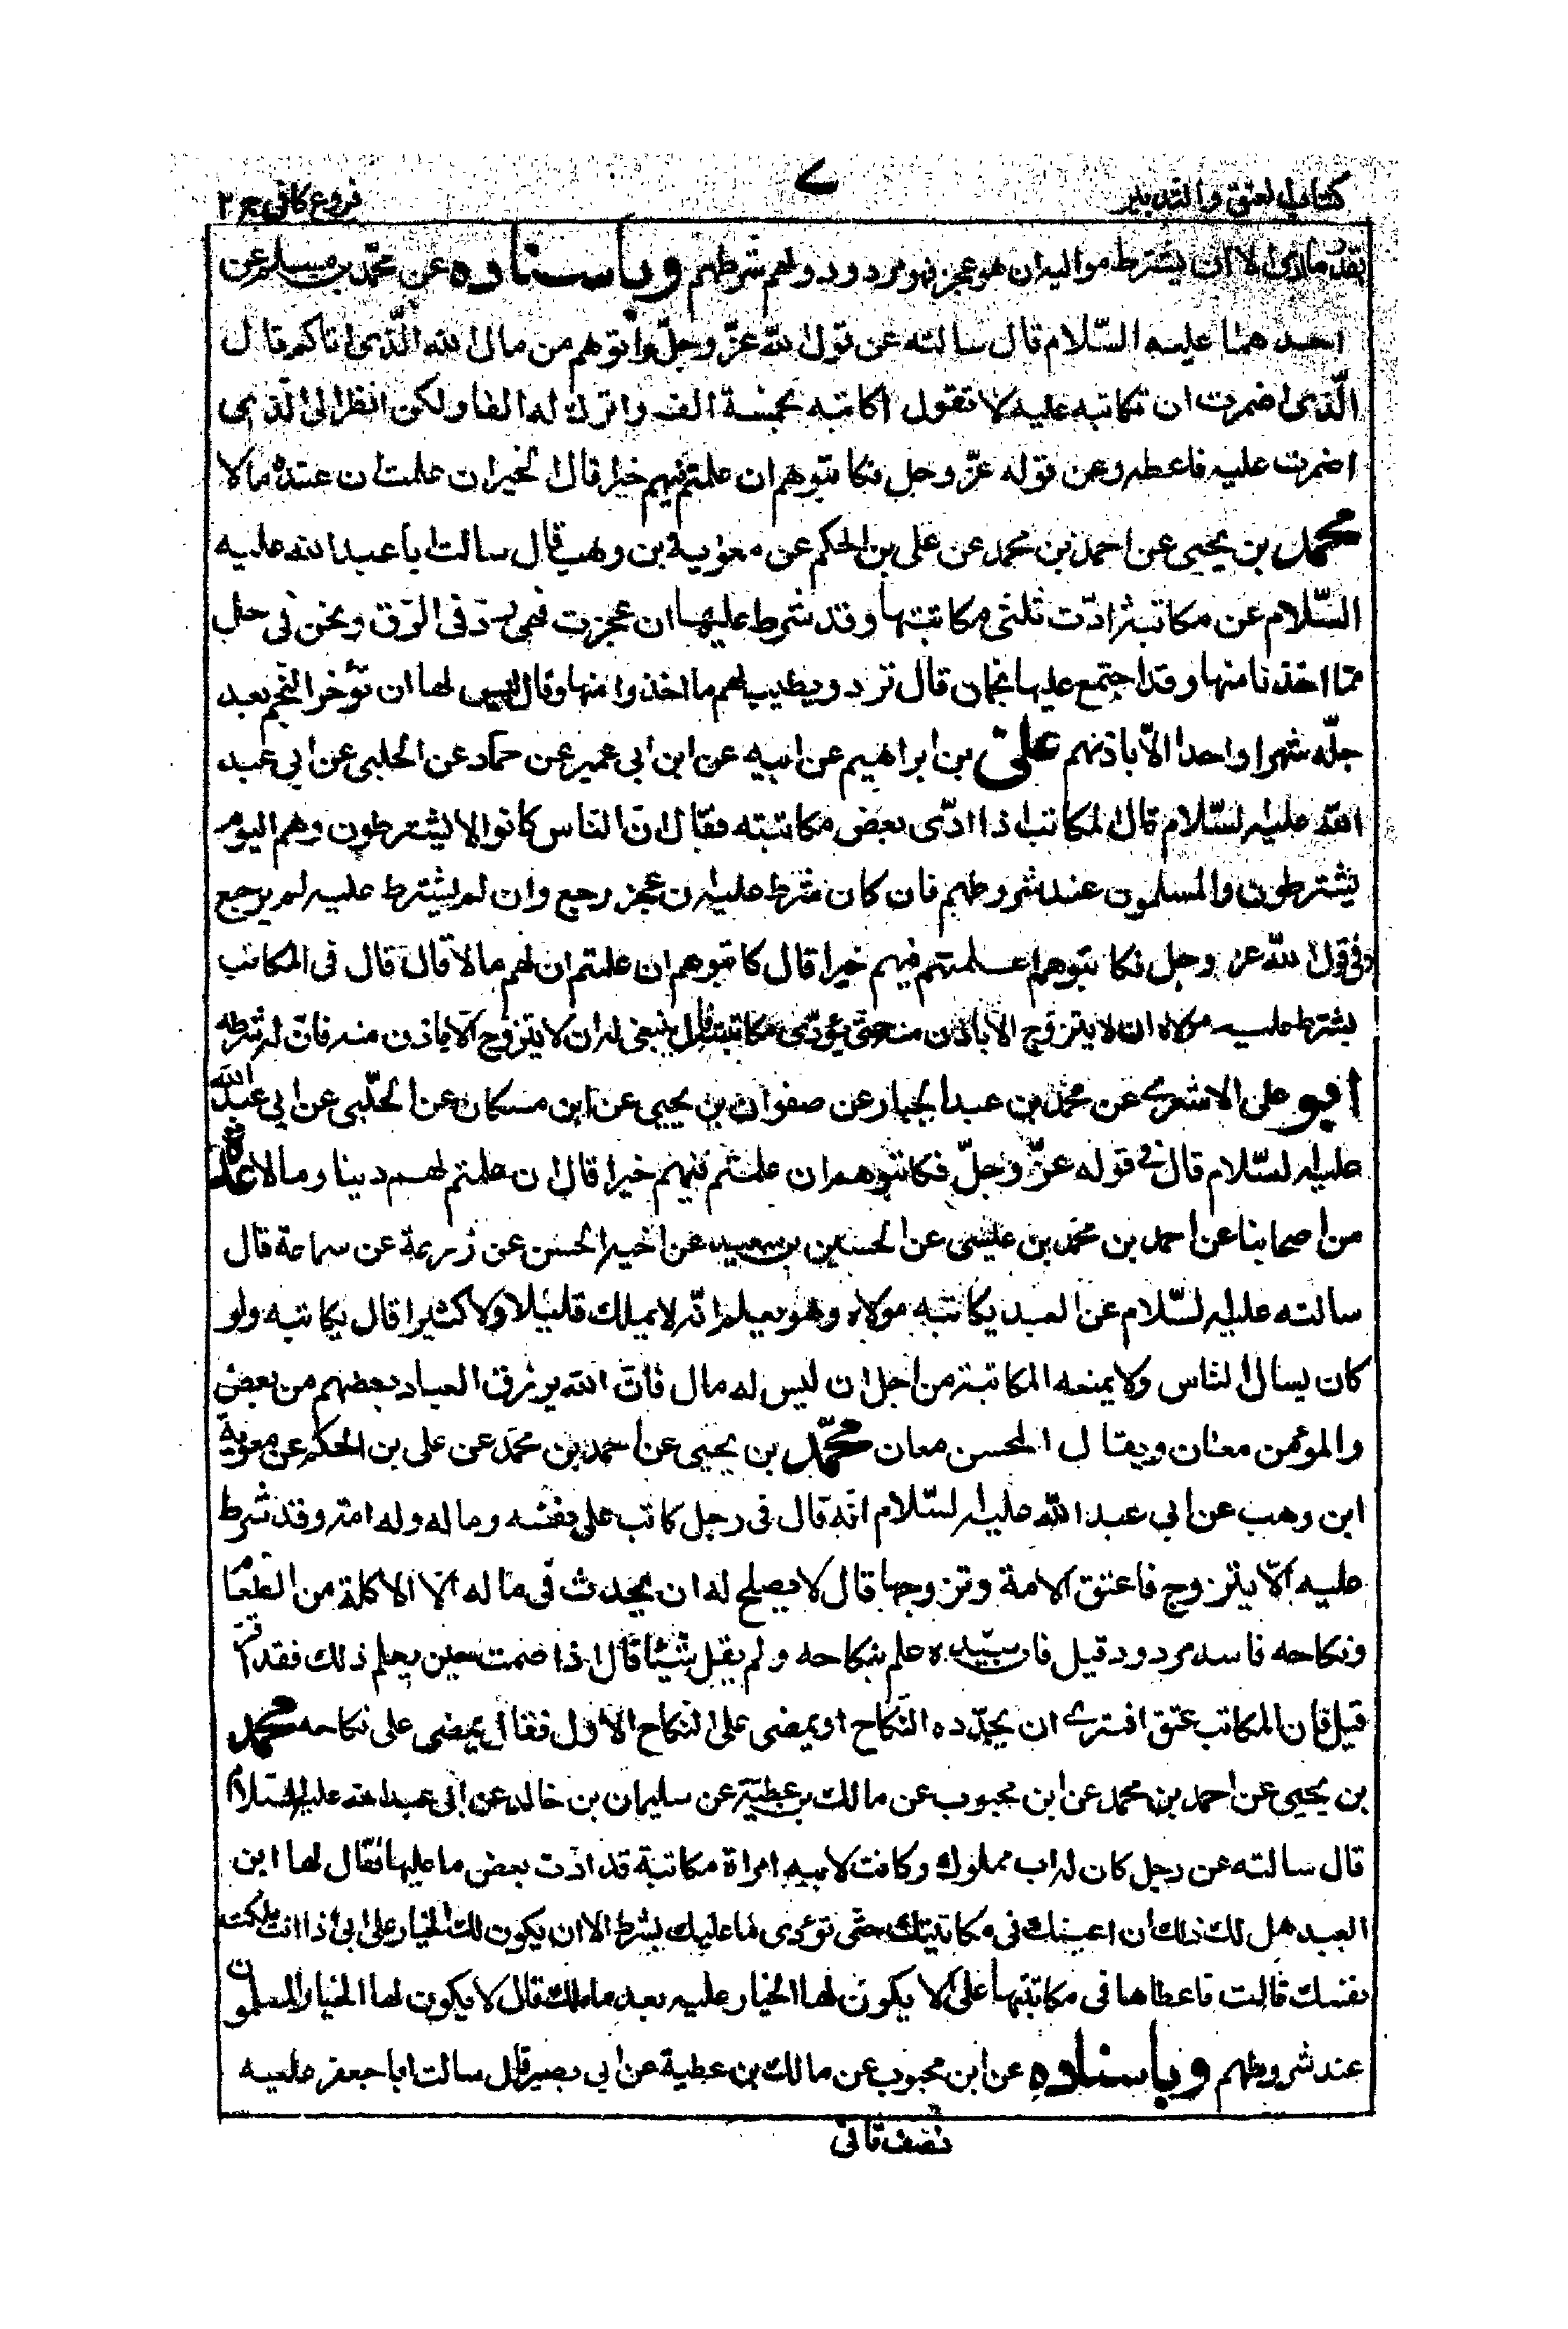 كتاب العتق والتدبير
٧
فروع كافى ج ٢
بقدر ما ادى الا ان يشترط مواليه ان هو عجز فهو مردود ولهم شرطهم وباسناده عن محمد بن مسلم عن
احدهما عليه السّلام قال سالته عن قول الله عزّ وجلّ وآتوهم من مال الله الّذى اتاكم قال
الّذى اضمرت ان تكاتبه عليه لا تقول اكاتبه بخمسة الف واترك له الفا ولكن انظر الى الّذى
اضمرت عليه فاعطه وعن قوله عزّ وجل فكاتبوهم ان علمتم فيهم خيرا قال الخير ان علمت ان عنده مالا
محمد بن يحيى عن احمد بن محمد عن على بن الحكم عن معوية بن وهب قال سالت ابا عبد الله عليه
السّلام عن مكاتبة ادّت ثلثى مكاتبتها وقد شرط عليها ان عجزت فهى ردّ فى الرّق ونحن فى حل
ممّا اخذنا منها وقد اجتمع عليها نجمان قال ترد ويطيب لهم ما اخذوا منها وقال ليس لها ان تؤخر النجم بعد
حلّه شهرا واحدا الّا باذنهم علىّ بن ابراهيم عن ابيه عن ابن ابى عمير عن حماد عن الحلبى عن ابى عبد
الله عليه السّلام قال المكاتب اذا ادّى بعض مكاتبته فقال انّ الناس كانوا لا يشترطون وهم اليوم
يشترطون والمسلمون عند شروطهم فان كان شرط عليه ان عجز رجع وان لم يشترط عليه لم يرجع
وفى قول الله عز وجل فكاتبوهم ان علمتم فيهم خيرا قال كاتبوهم ان علمتم ان لهم مالا قال قال فى المكاتب
يشترط عليه مولاه ان لا يتزوج الا باذن منه حتى يؤدّى مكاتبته قال ينبغى له ان لا يتزوج الّا باذن منه فان له شرطه
ابو على الاشعرى عن محمّد بن عبد الجبار عن صفوان بن يحيى عن ابن مسكان عن الحلّبى عن ابى عبد الله
عليه السّلام قال فى قوله عزّ وجلّ فكاتبوهم ان علمتم فيهم خيرا قال ان علمتم لهم دينا ومالا عدة
من اصحابنا عن احمد بن محمّد بن عليسى عن الحسين بن سعيد عن اخيه الحسن عن زرعة عن سماعة قال
سالته عليه السّلام عن العبد يكاتبه مولاه وهو يعلم انّه لا يملك قليلا ولا كثيرا قال يكاتبه ولو
كان يسال الناس ولا يمنعه المكاتبة من اجل ان ليس له مال فانّ الله يرزق العباد بعضهم من بعض
والمؤمن معان ويقال المحسن معان محمّد بن يحيى عن احمد بن محمّد عن على بن الحكم عن معوية
ابن وهب عن ابى عبد الله عليه السّلام انّه قال فى رجل كاتب على نفسه وماله وله امة وقد شرط
عليه الّا يتزوج فاعتق الامة وتزوجها قال لا يصلح له ان يحدث فى ماله الّا الاكلة من الطعام
ونكاحه فاسد مردود قيل فان سيّده علم بنكاحه ولم يقل شيئا قال اذا صمت حين يعلم ذلك فقد اقرّ
قيل فان المكاتب عتق افترى ان يجدّده النّكاح او يمضى على النكاح الاول فقال يمضى على نكاحه محمد
بن يحيى عن احمد بن محمد عن ابن محبوب عن مالك بن عطيّة عن سليمان بن خالد عن ابى عبد الله عليه السّلام
قال سالته عن رجل كان له اب مملوك وكانت لابيه امراة مكاتبة قد ادّت بعض ما عليها فقال لها ابن
العبد هل لك ذلك ان اعينك فى مكاتبتك حتّى تؤدى ما عليك بشرط الا ان يكون لك الخيار على ابى اذا انت ملكت
نفسك قالت فاعطاها فى مكاتبتها على الا يكون لها الخيار عليه بعد ما ملك قال لا يكون لها الخيار المسلمون
عند شروطهم وباسناده عن ابن محبوب عن مالك بن عطية عن ابى بصير قال سالت ابا جعفر عليه
نصف ثانى